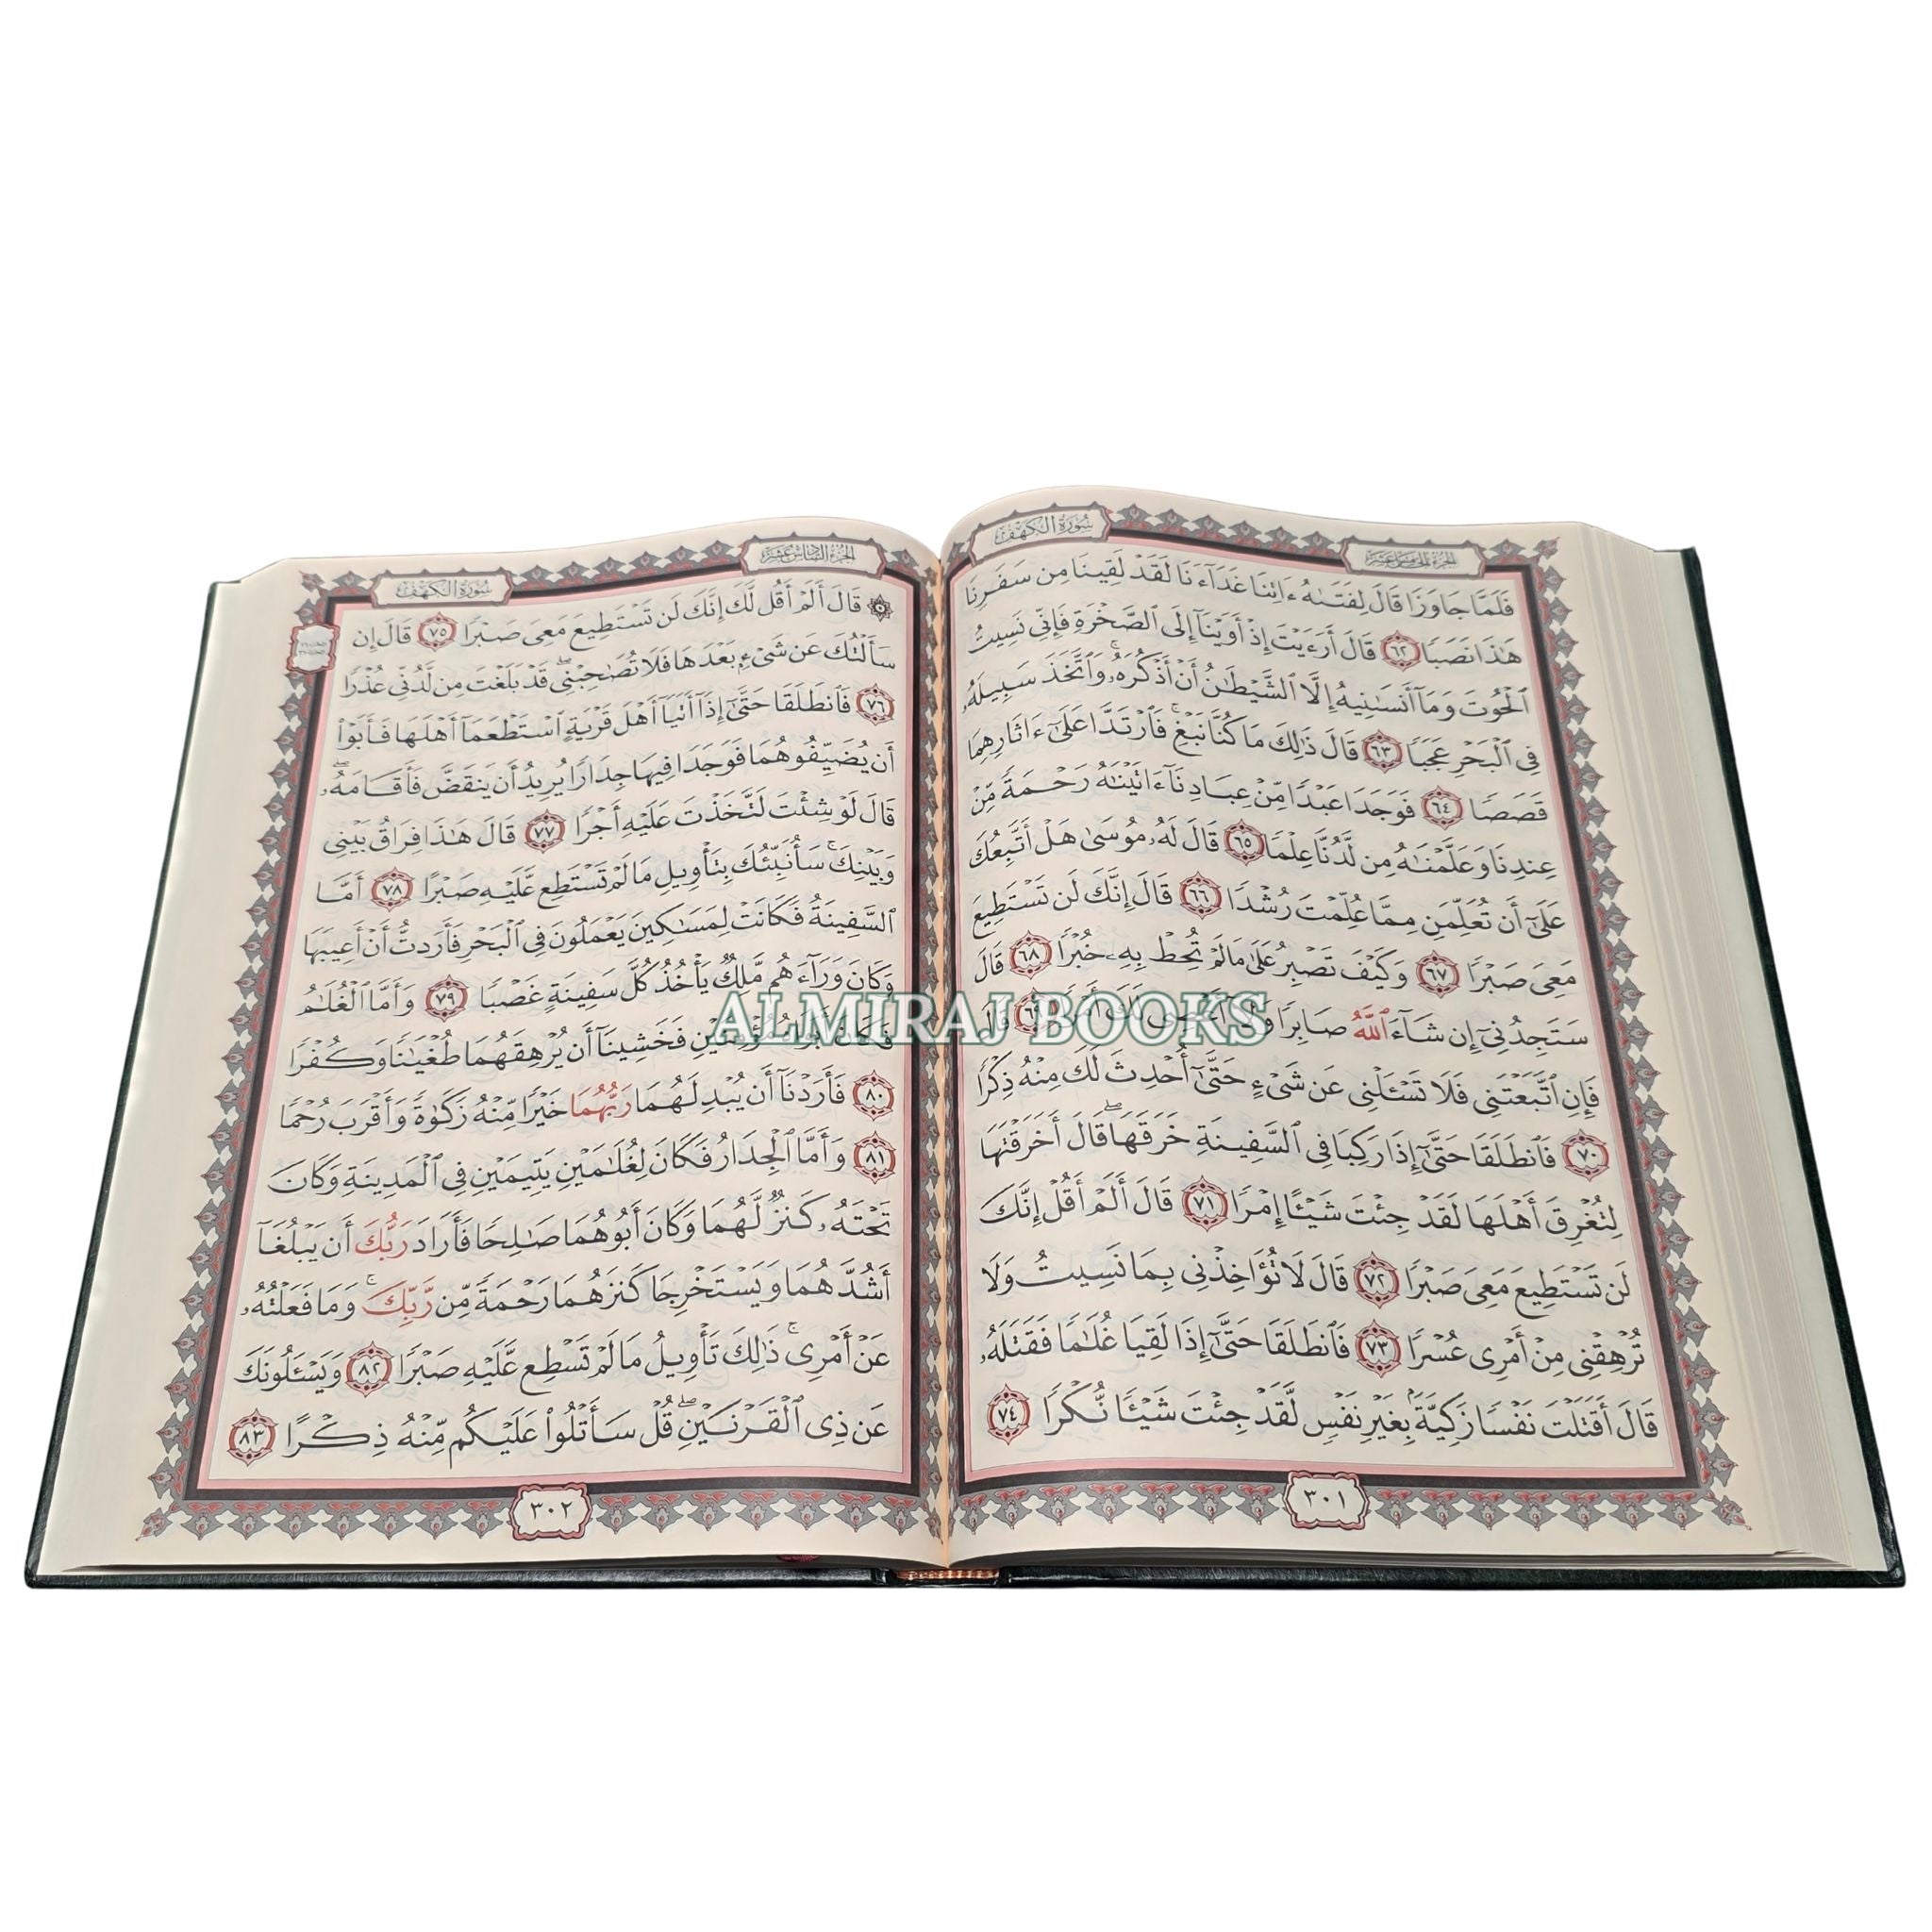 سُورَةُ الكَهْفِ
الجزء الخامس عشر
فَلَمَّا جَاوَزَا قَالَ لِفَتَىٰهُ ءَاتِنَا غَدَآءَنَا لَقَدْ لَقِينَا مِن سَفَرِنَا
هَٰذَا نَصَبًا ٦٢ قَالَ أَرَءَيْتَ إِذْ أَوَيْنَآ إِلَى ٱلصَّخْرَةِ فَإِنِّي نَسِيتُ
ٱلْحُوتَ وَمَآ أَنسَىٰنِيهُ إِلَّا ٱلشَّيْطَٰنُ أَنْ أَذْكُرَهُۥ ۚ وَٱتَّخَذَ سَبِيلَهُۥ
فِى ٱلْبَحْرِ عَجَبًا ٦٣ قَالَ ذَٰلِكَ مَا كُنَّا نَبْغِ ۚ فَٱرْتَدَّا عَلَىٰٓ ءَاثَارِهِمَا
قَصَصًا ٦٤ فَوَجَدَا عَبْدًا مِّنْ عِبَادِنَآ ءَاتَيْنَٰهُ رَحْمَةً مِّنْ
عِندِنَا وَعَلَّمْنَٰهُ مِن لَّدُنَّا عِلْمًا ٦٥ قَالَ لَهُۥ مُوسَىٰ هَلْ أَتَّبِعُكَ
عَلَىٰٓ أَن تُعَلِّمَنِ مِمَّا عُلِّمْتَ رُشْدًا ٦٦ قَالَ إِنَّكَ لَن تَسْتَطِيعَ
مَعِىَ صَبْرًا ٦٧ وَكَيْفَ تَصْبِرُ عَلَىٰ مَا لَمْ تُحِطْ بِهِۦ خُبْرًا ٦٨ قَالَ
سَتَجِدُنِىٓ إِن شَآءَ ٱللَّهُ صَابِرًا وَلَآ أَعْصِى لَكَ أَمْرًا ٦٩ قَالَ
فَإِنِ ٱتَّبَعْتَنِى فَلَا تَسْـَٔلْنِى عَن شَىْءٍ حَتَّىٰٓ أُحْدِثَ لَكَ مِنْهُ ذِكْرًا
٧٠ فَٱنطَلَقَا حَتَّىٰٓ إِذَا رَكِبَا فِى ٱلسَّفِينَةِ خَرَقَهَا ۖ قَالَ أَخَرَقْتَهَا
لِتُغْرِقَ أَهْلَهَا لَقَدْ جِئْتَ شَيْـًٔا إِمْرًا ٧١ قَالَ أَلَمْ أَقُلْ إِنَّكَ
لَن تَسْتَطِيعَ مَعِىَ صَبْرًا ٧٢ قَالَ لَا تُؤَاخِذْنِى بِمَا نَسِيتُ وَلَا
تُرْهِقْنِى مِنْ أَمْرِى عُسْرًا ٧٣ فَٱنطَلَقَا حَتَّىٰٓ إِذَا لَقِيَا غُلَٰمًا فَقَتَلَهُۥ
قَالَ أَقَتَلْتَ نَفْسًا زَكِيَّةًۢ بِغَيْرِ نَفْسٍ لَّقَدْ جِئْتَ شَيْـًٔا نُّكْرًا ٧٤
٣٠١
الجزء السادس عشر
سُورَةُ الكَهْفِ
۞ قَالَ أَلَمْ أَقُل لَّكَ إِنَّكَ لَن تَسْتَطِيعَ مَعِىَ صَبْرًا ٧٥ قَالَ إِن
سَأَلْتُكَ عَن شَىْءٍۭ بَعْدَهَا فَلَا تُصَٰحِبْنِى ۖ قَدْ بَلَغْتَ مِن لَّدُنِّى عُذْرًا
٧٦ فَٱنطَلَقَا حَتَّىٰٓ إِذَآ أَتَيَآ أَهْلَ قَرْيَةٍ ٱسْتَطْعَمَآ أَهْلَهَا فَأَبَوْا۟
أَن يُضَيِّفُوهُمَا فَوَجَدَا فِيهَا جِدَارًا يُرِيدُ أَن يَنقَضَّ فَأَقَامَهُۥ ۖ
قَالَ لَوْ شِئْتَ لَتَّخَذْتَ عَلَيْهِ أَجْرًا ٧٧ قَالَ هَٰذَا فِرَاقُ بَيْنِى
وَبَيْنِكَ ۚ سَأُنَبِّئُكَ بِتَأْوِيلِ مَا لَمْ تَسْتَطِع عَّلَيْهِ صَبْرًا ٧٨ أَمَّا
ٱلسَّفِينَةُ فَكَانَتْ لِمَسَٰكِينَ يَعْمَلُونَ فِى ٱلْبَحْرِ فَأَرَدتُّ أَنْ أَعِيبَهَا
وَكَانَ وَرَآءَهُم مَّلِكٌ يَأْخُذُ كُلَّ سَفِينَةٍ غَصْبًا ٧٩ وَأَمَّا ٱلْغُلَٰمُ
فَكَانَ أَبَوَاهُ مُؤْمِنَيْنِ فَخَشِينَآ أَن يُرْهِقَهُمَا طُغْيَٰنًا وَكُفْرًا
٨٠ فَأَرَدْنَآ أَن يُبْدِلَهُمَا رَبُّهُمَا خَيْرًا مِّنْهُ زَكَوٰةً وَأَقْرَبَ رُحْمًا
٨١ وَأَمَّا ٱلْجِدَارُ فَكَانَ لِغُلَٰمَيْنِ يَتِيمَيْنِ فِى ٱلْمَدِينَةِ وَكَانَ
تَحْتَهُۥ كَنزٌ لَّهُمَا وَكَانَ أَبُوهُمَا صَٰلِحًا فَأَرَادَ رَبُّكَ أَن يَبْلُغَآ
أَشُدَّهُمَا وَيَسْتَخْرِجَا كَنزَهُمَا رَحْمَةً مِّن رَّبِّكَ ۚ وَمَا فَعَلْتُهُۥ
عَنْ أَمْرِى ۚ ذَٰلِكَ تَأْوِيلُ مَا لَمْ تَسْطِع عَّلَيْهِ صَبْرًا ٨٢ وَيَسْـَٔلُونَكَ
عَن ذِى ٱلْقَرْنَيْنِ ۖ قُلْ سَأَتْلُوا۟ عَلَيْكُم مِّنْهُ ذِكْرًا ٨٣
٣٠٢
ALMIRAJ BOOKS